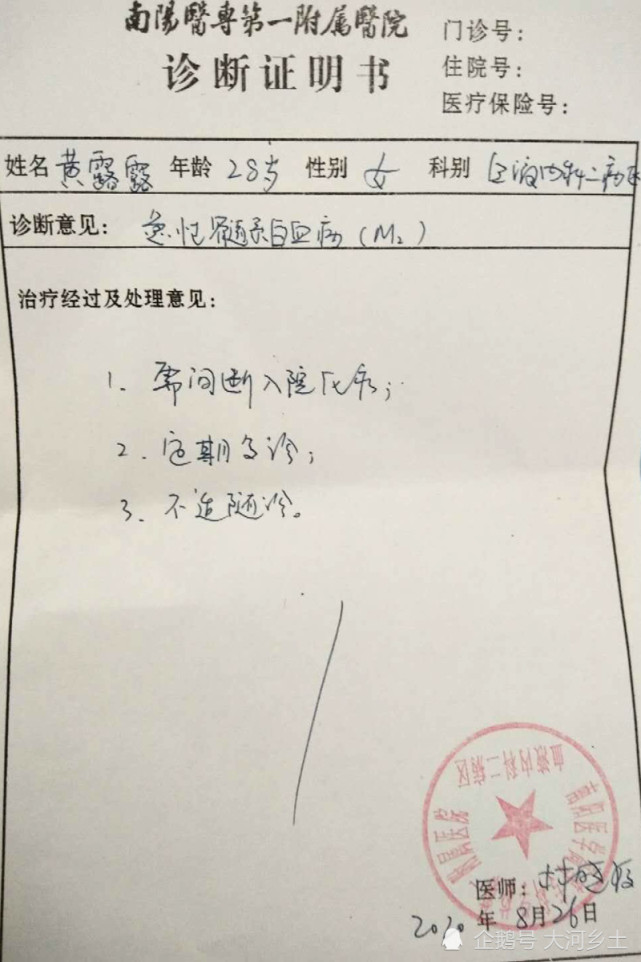 南陽醫專第一附属醫院
诊断证明书
门诊号：
住院号：
医疗保险号：
姓名 黄露露 年龄 28岁 性别 女 科别 血液内科二病区
诊断意见： 急性髓系白血病（M₂）
治疗经过及处理意见：
1. 需间断入院化疗；
2. 定期复诊；
3. 不适随诊。
血液内科二病区
附属医院
医师：
2020年8月26日
企鹅号 大河乡土